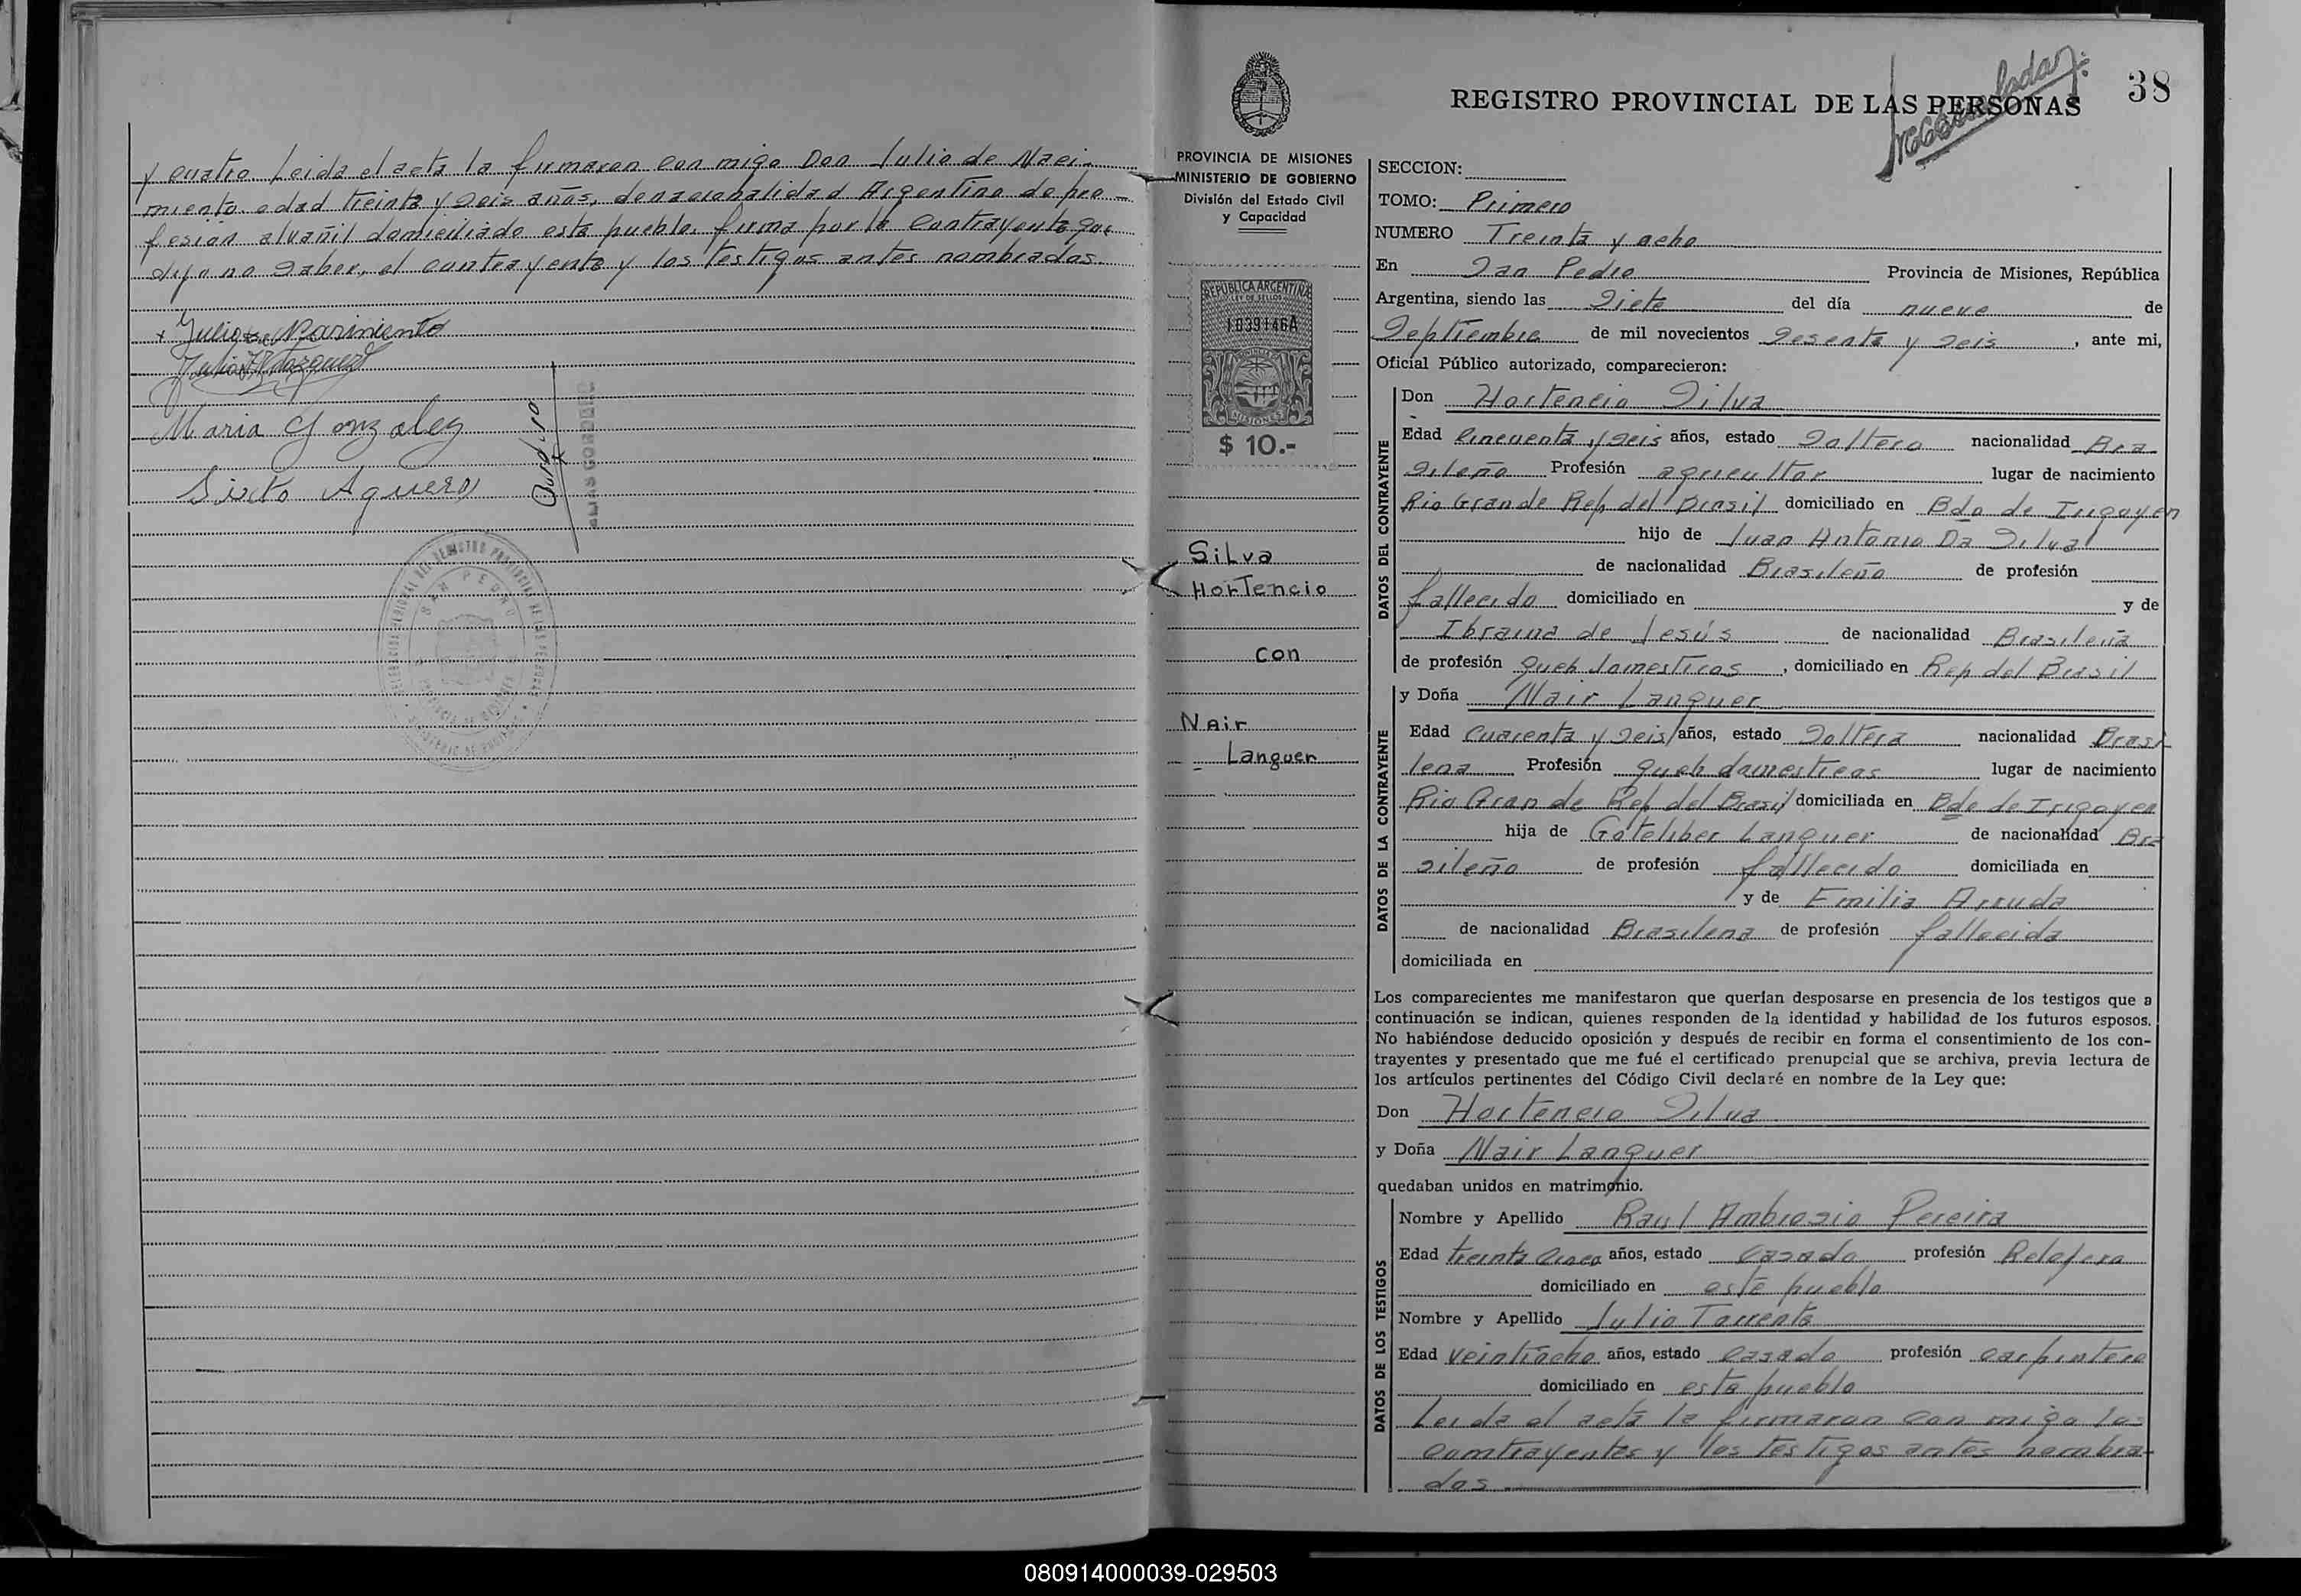 y cuatro. Leida el acta la firmaron con migo Don Julio de Naci-
miento edad treinta y seis años, de nacionalidad Argentino de pro-
fesion alvañil domiciliado esta pueblo, firma por la contrayente que
dijo no saber, el contrayente y los testigos antes nombrados.
x Julio de Nacimiento
Julio Vazquez
Maria Gonzalez
Sixto Aguero
SAN PEDRO
38
REGISTRO PROVINCIAL DE LAS PERSONAS
PROVINCIA DE MISIONES
MINISTERIO DE GOBIERNO
División del Estado Civil
y Capacidad
REPUBLICA ARGENTINA
LEY DE SELLOS
1039146A
MISIONES
$ 10.-
Silva
Hortencio
con
Nair
Languer
SECCION:
TOMO: Primero
NUMERO Treinta y ocho
En San Pedro Provincia de Misiones, República
Argentina, siendo las Siete del día nueve de
Septiembre de mil novecientos Sesenta y seis, ante mi,
Oficial Público autorizado, comparecieron:
DATOS DEL CONTRAYENTE
Don Hortencio Silva
Edad Cincuenta y seis años, estado Soltero nacionalidad Bra
sileño Profesión agricultor lugar de nacimiento
Rio Grande Rep del Brasil domiciliado en Bdo de Irigoyen
hijo de Juan Antonio Da Silva
de nacionalidad Brasileño de profesión
fallecido domiciliado en y de
Ibraina de Jesús de nacionalidad Brasileña
de profesión queh domesticos, domiciliado en Rep del Brasil
DATOS DE LA CONTRAYENTE
y Doña Nair Languer
Edad Cuarenta y seis años, estado Soltera nacionalidad Brasi
lena Profesión queh domesticos lugar de nacimiento
Rio Grande Rep del Brasil domiciliada en Bdo de Irigoyen
hija de Goteliber Languer de nacionalidad Bra
sileño de profesión fallecido domiciliada en
y de Emilia Arruda
de nacionalidad Brasilena de profesión fallecida
domiciliada en
Los comparecientes me manifestaron que querían desposarse en presencia de los testigos que a
continuación se indican, quienes responden de la identidad y habilidad de los futuros esposos.
No habiéndose deducido oposición y después de recibir en forma el consentimiento de los con-
trayentes y presentado que me fué el certificado prenupcial que se archiva, previa lectura de
los artículos pertinentes del Código Civil declaré en nombre de la Ley que:
Don Hortencio Silva
y Doña Nair Languer
quedaban unidos en matrimonio.
DATOS DE LOS TESTIGOS
Nombre y Apellido Raul Ambrosio Pereira
Edad treinta cinco años, estado Casado profesión Relojero
domiciliado en este pueblo
Nombre y Apellido Julio Torrente
Edad veintiocho años, estado casado profesión carpintero
domiciliado en este pueblo
Leida el acta la firmaron con migo los
contrayentes y los testigos antes nombra-
dos
080914000039-029503